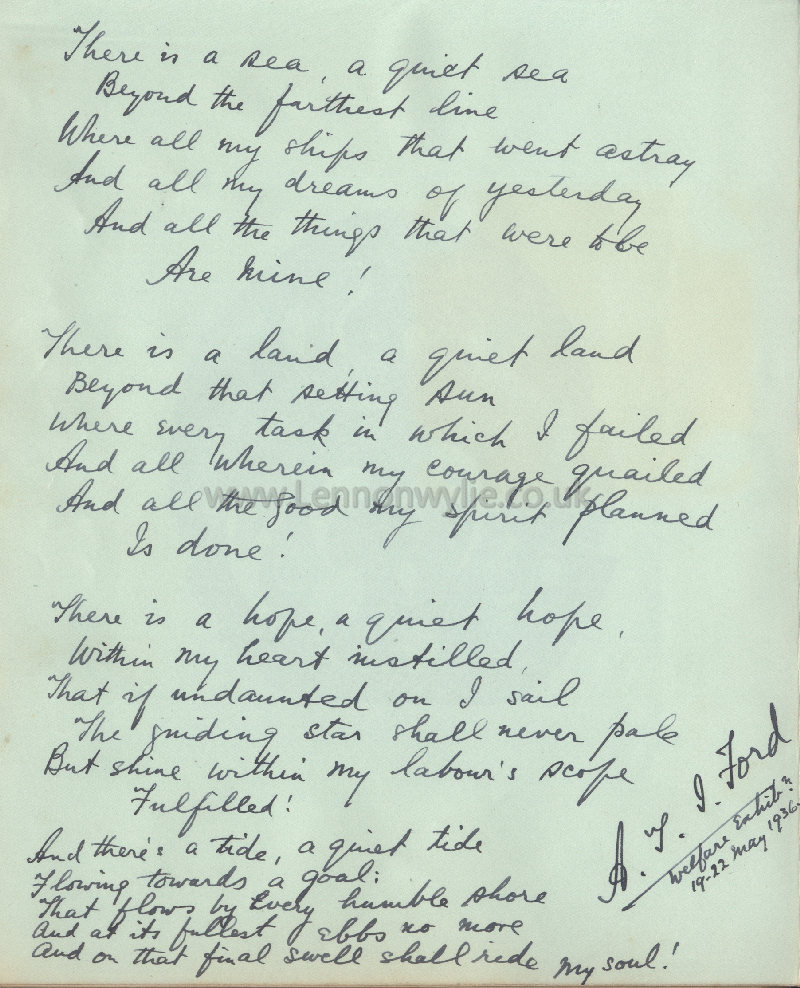 There is a sea, a quiet sea
Beyond the farthest line
Where all my ships that went astray
And all my dreams of yesterday
And all the things that were to be
Are mine!
There is a land, a quiet land
Beyond that setting sun
Where every task in which I failed
And all wherein my courage quailed
And all the good my spirit planned
Is done!
There is a hope, a quiet hope,
Within my heart instilled,
That if undaunted on I sail
The guiding star shall never pale
But shine within my labour's scope
Fulfilled!
And there's a tide, a quiet tide
Flowing towards a goal:
That flows by Every humble shore
And at its fullest ebbs no more
And on that final swell shall ride my soul!
A. I. Ford
Welfare Exhibn.
19-22 May 1936.
www.Lennonwylie.co.uk